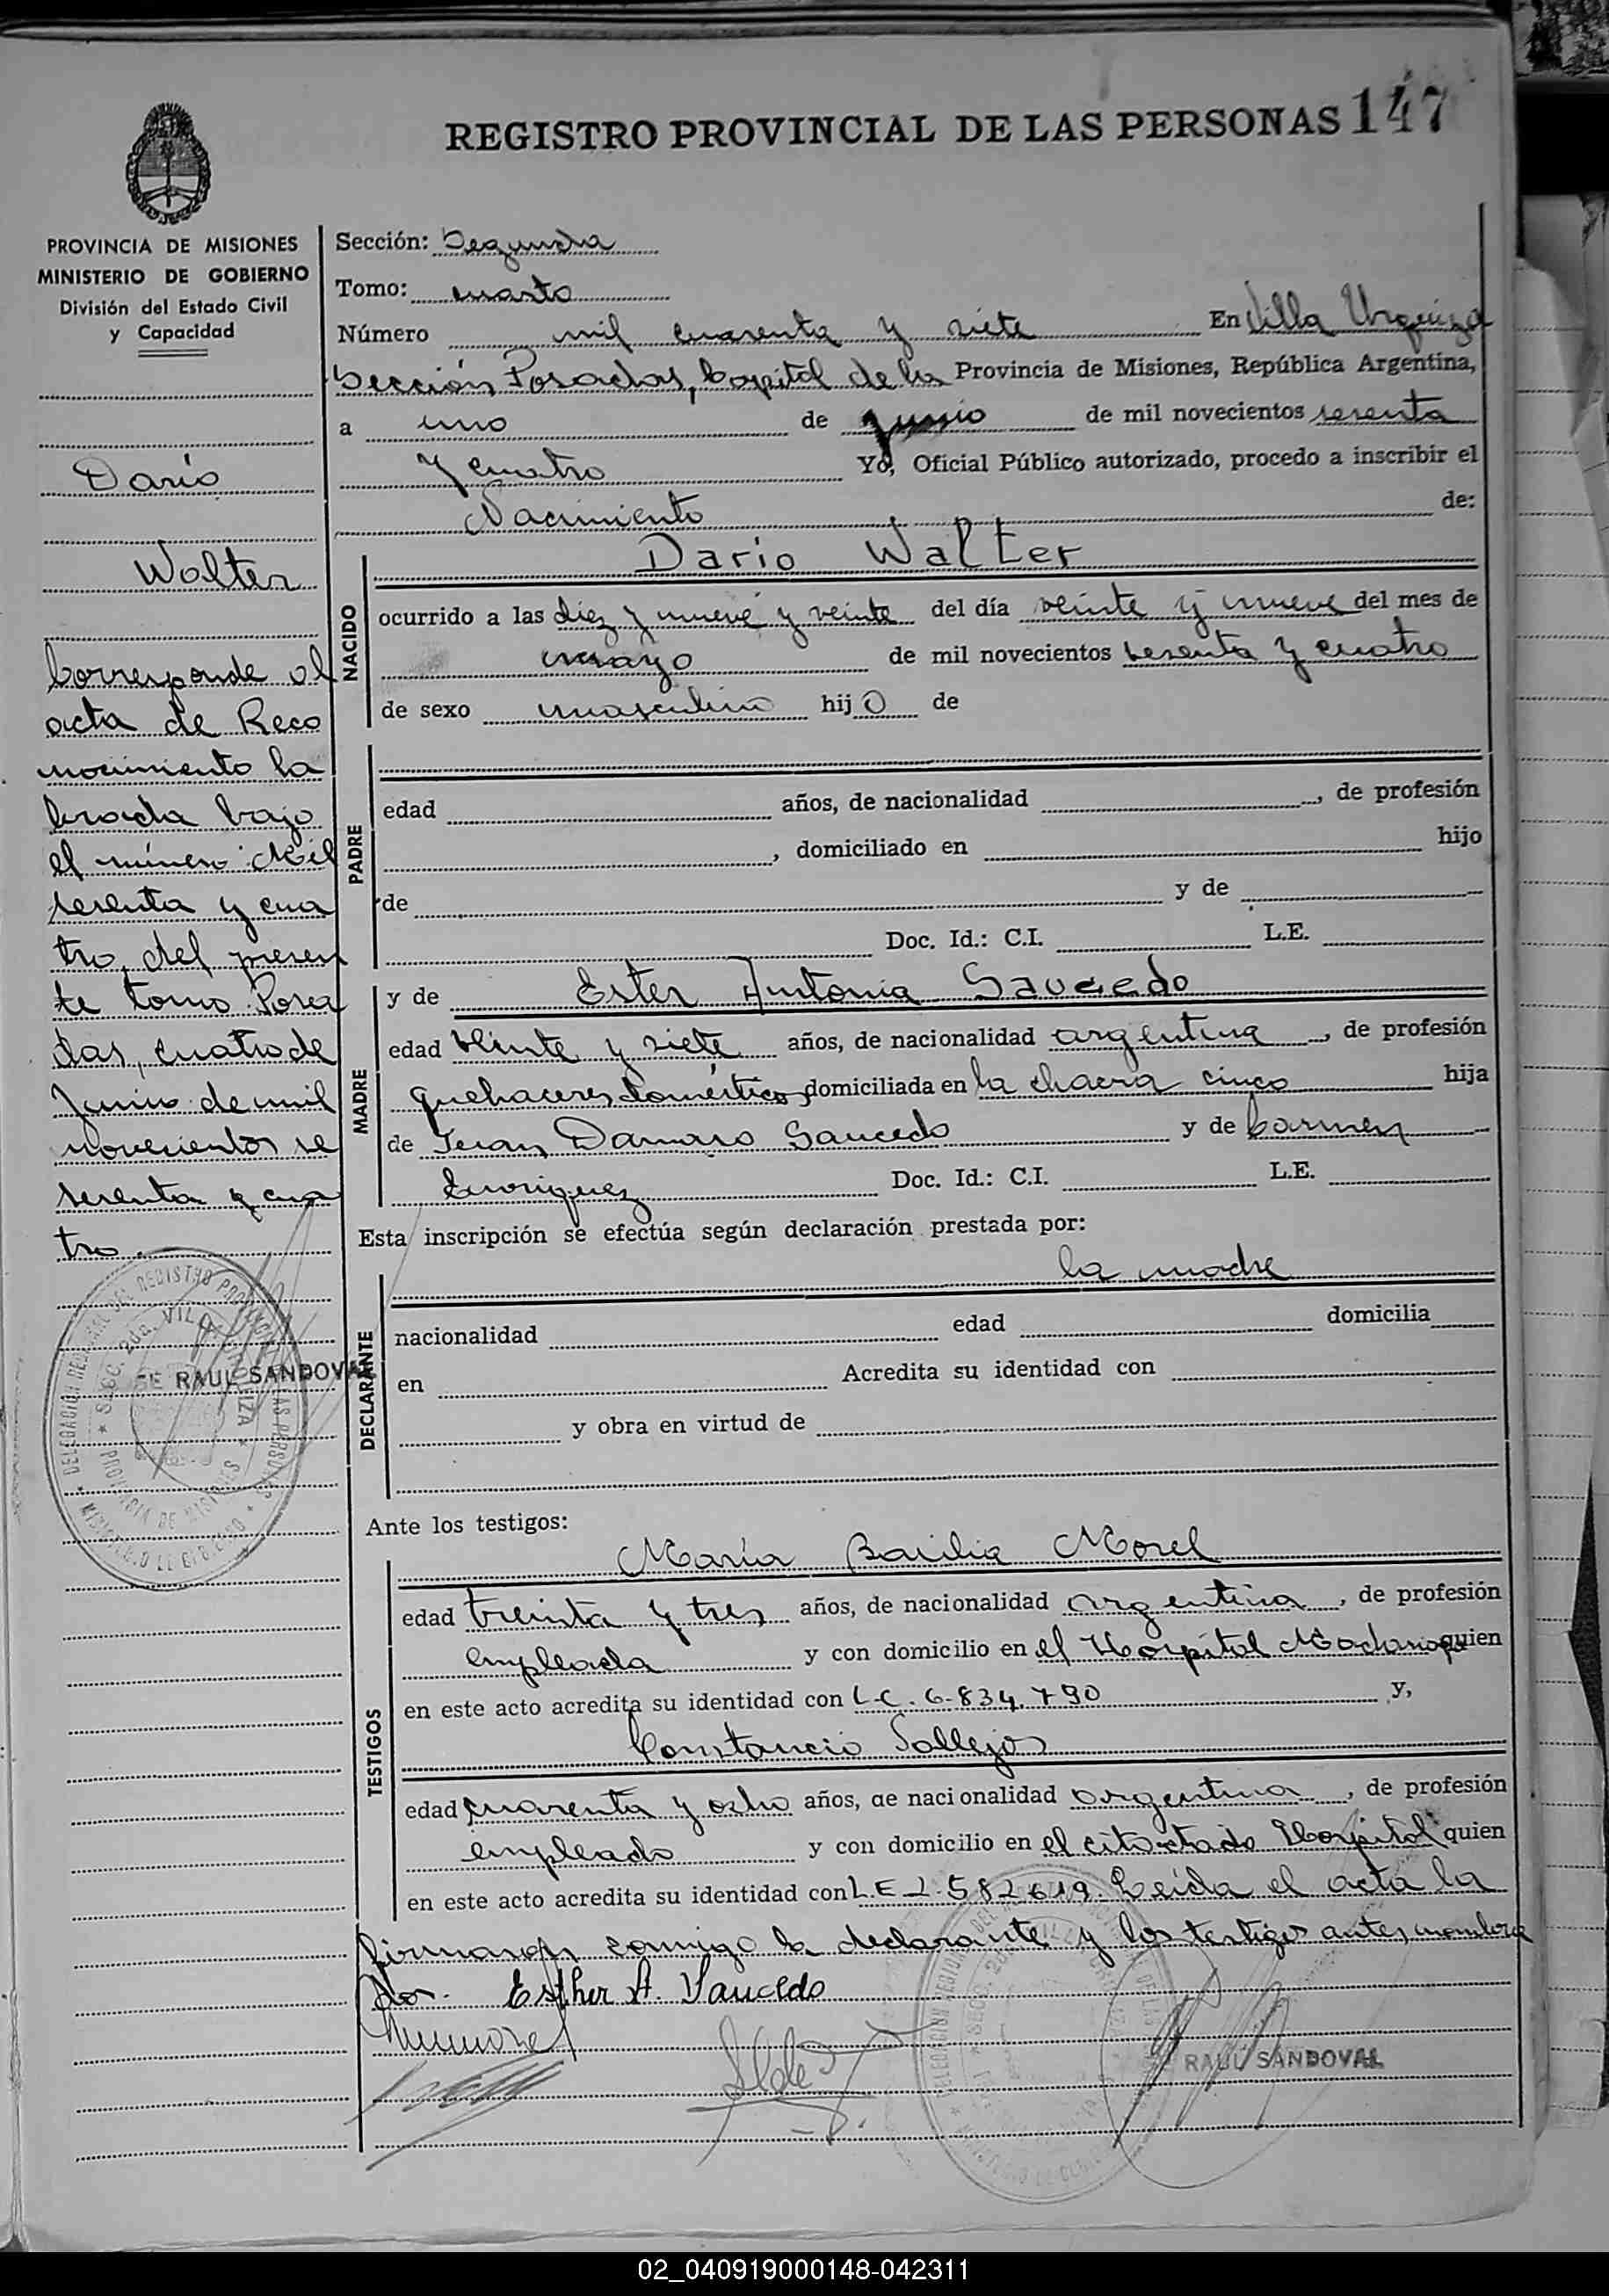 REGISTRO PROVINCIAL DE LAS PERSONAS 147
PROVINCIA DE MISIONES
MINISTERIO DE GOBIERNO
División del Estado Civil
y Capacidad
Darío
Walter
Corresponde al
acta de Reco
nocimiento la
brada bajo
el número Mil
sesenta y cua
tro, del presen
te tomo Posa
das, cuatro de
Junio de mil
novecientos se
sesenta y cua
tro.
DELEGACION REGIONAL DEL REGISTRO PROVINCIAL DE LAS PERSONAS
SECC. 2da. VILLA URQUIZA
PROVINCIA DE MISIONES
MINISTERIO DE GOBIERNO
RAUL SANDOVAL
Sección: Segunda
Tomo: cuarto
Número mil cuarenta y siete En Villa Urquiza
Sección Posadas, Capital de la Provincia de Misiones, República Argentina,
a uno de junio de mil novecientos sesenta
y cuatro Yo, Oficial Público autorizado, procedo a inscribir el
Nacimiento de:
NACIDO
Dario Walter
ocurrido a las diez y nueve y veinte del día veinte y nueve del mes de
mayo de mil novecientos sesenta y cuatro
de sexo masculino hijo de
PADRE
edad años, de nacionalidad , de profesión
, domiciliado en hijo
de y de
Doc. Id.: C.I. L.E.
MADRE
y de Ester Antonia Saucedo
edad veinte y siete años, de nacionalidad argentina , de profesión
quehaceres domésticos domiciliada en la chacra cinco hija
de Juan Damaso Saucedo y de Carmen
Enriquez Doc. Id.: C.I. L.E.
Esta inscripción se efectúa según declaración prestada por:
DECLARANTE
la madre
nacionalidad edad domicilia
en Acredita su identidad con
y obra en virtud de
Ante los testigos:
TESTIGOS
María Basilia Morel
edad treinta y tres años, de nacionalidad argentina , de profesión
empleada y con domicilio en el Hospital Madariaga quien
en este acto acredita su identidad con L.C. 6.834.790 y,
Constancio Vallejos
edad cuarenta y ocho años, de nacionalidad argentina , de profesión
empleado y con domicilio en el citado Hospital quien
en este acto acredita su identidad con L.E 2.582619. Leída el acta la
firmaron conmigo la declarante y los testigos antes nombra
dos. Esther A. Saucedo
RAUL SANDOVAL
02_040919000148-042311